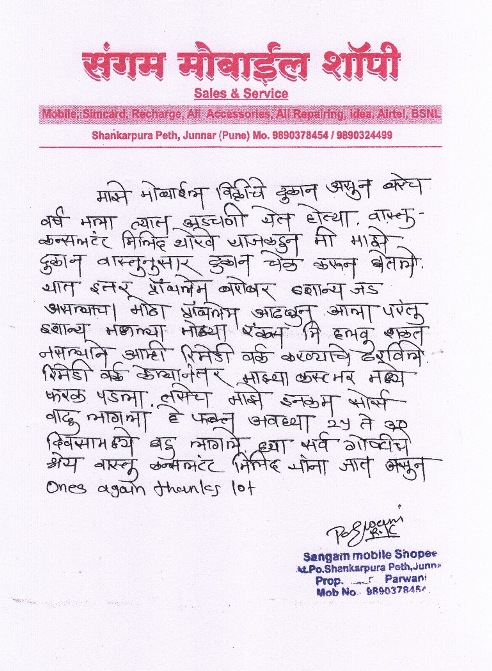 संगम मोबाईल शॉपी
Sales & Service
Mobile, Simcard, Recharge, All Accessories, All Repairing, Idea, Airtel, BSNL
Shankarpura Peth, Junnar (Pune) Mo. 9890378454 / 9890324499
माझे मोबाईल विक्रीचे दुकान असून बरेच
वर्ष मला त्यात अडचणी येत होत्या. वास्तु-
कन्सल्टंट मिलिंद थोरवे यांजकडुन मी माझे
दुकान वास्तुनुसार दुकान चेक करून घेतले.
यात इतर प्रॉब्लेम बरोबर इशान्य जड
असल्याचा मोठा प्रॉब्लेम आढळुन आला परंतु
इशान्य मधल्या मोठ्या मि हलवु शकत
नसल्याने आम्ही रिमेडी वर्क करण्याचे ठरविले.
रिमेडी वर्क केल्यानंतर माझ्या कस्टमर मध्ये
फरक पडला. तसेच माझे इनकम सोर्स
वाढु लागला हे फक्त अवघ्या २५ ते ३०
दिवसामध्ये घडु लागले ह्या सर्व गोष्टीचे
श्रेय वास्तु कन्सल्टंट मिलिंद यांना जात असुन
Ones again thanks lot
Sangam mobile Shopee
At.Po.Shankarpura Peth, Junna
Prop. Parwani
Mob No. 9890378454